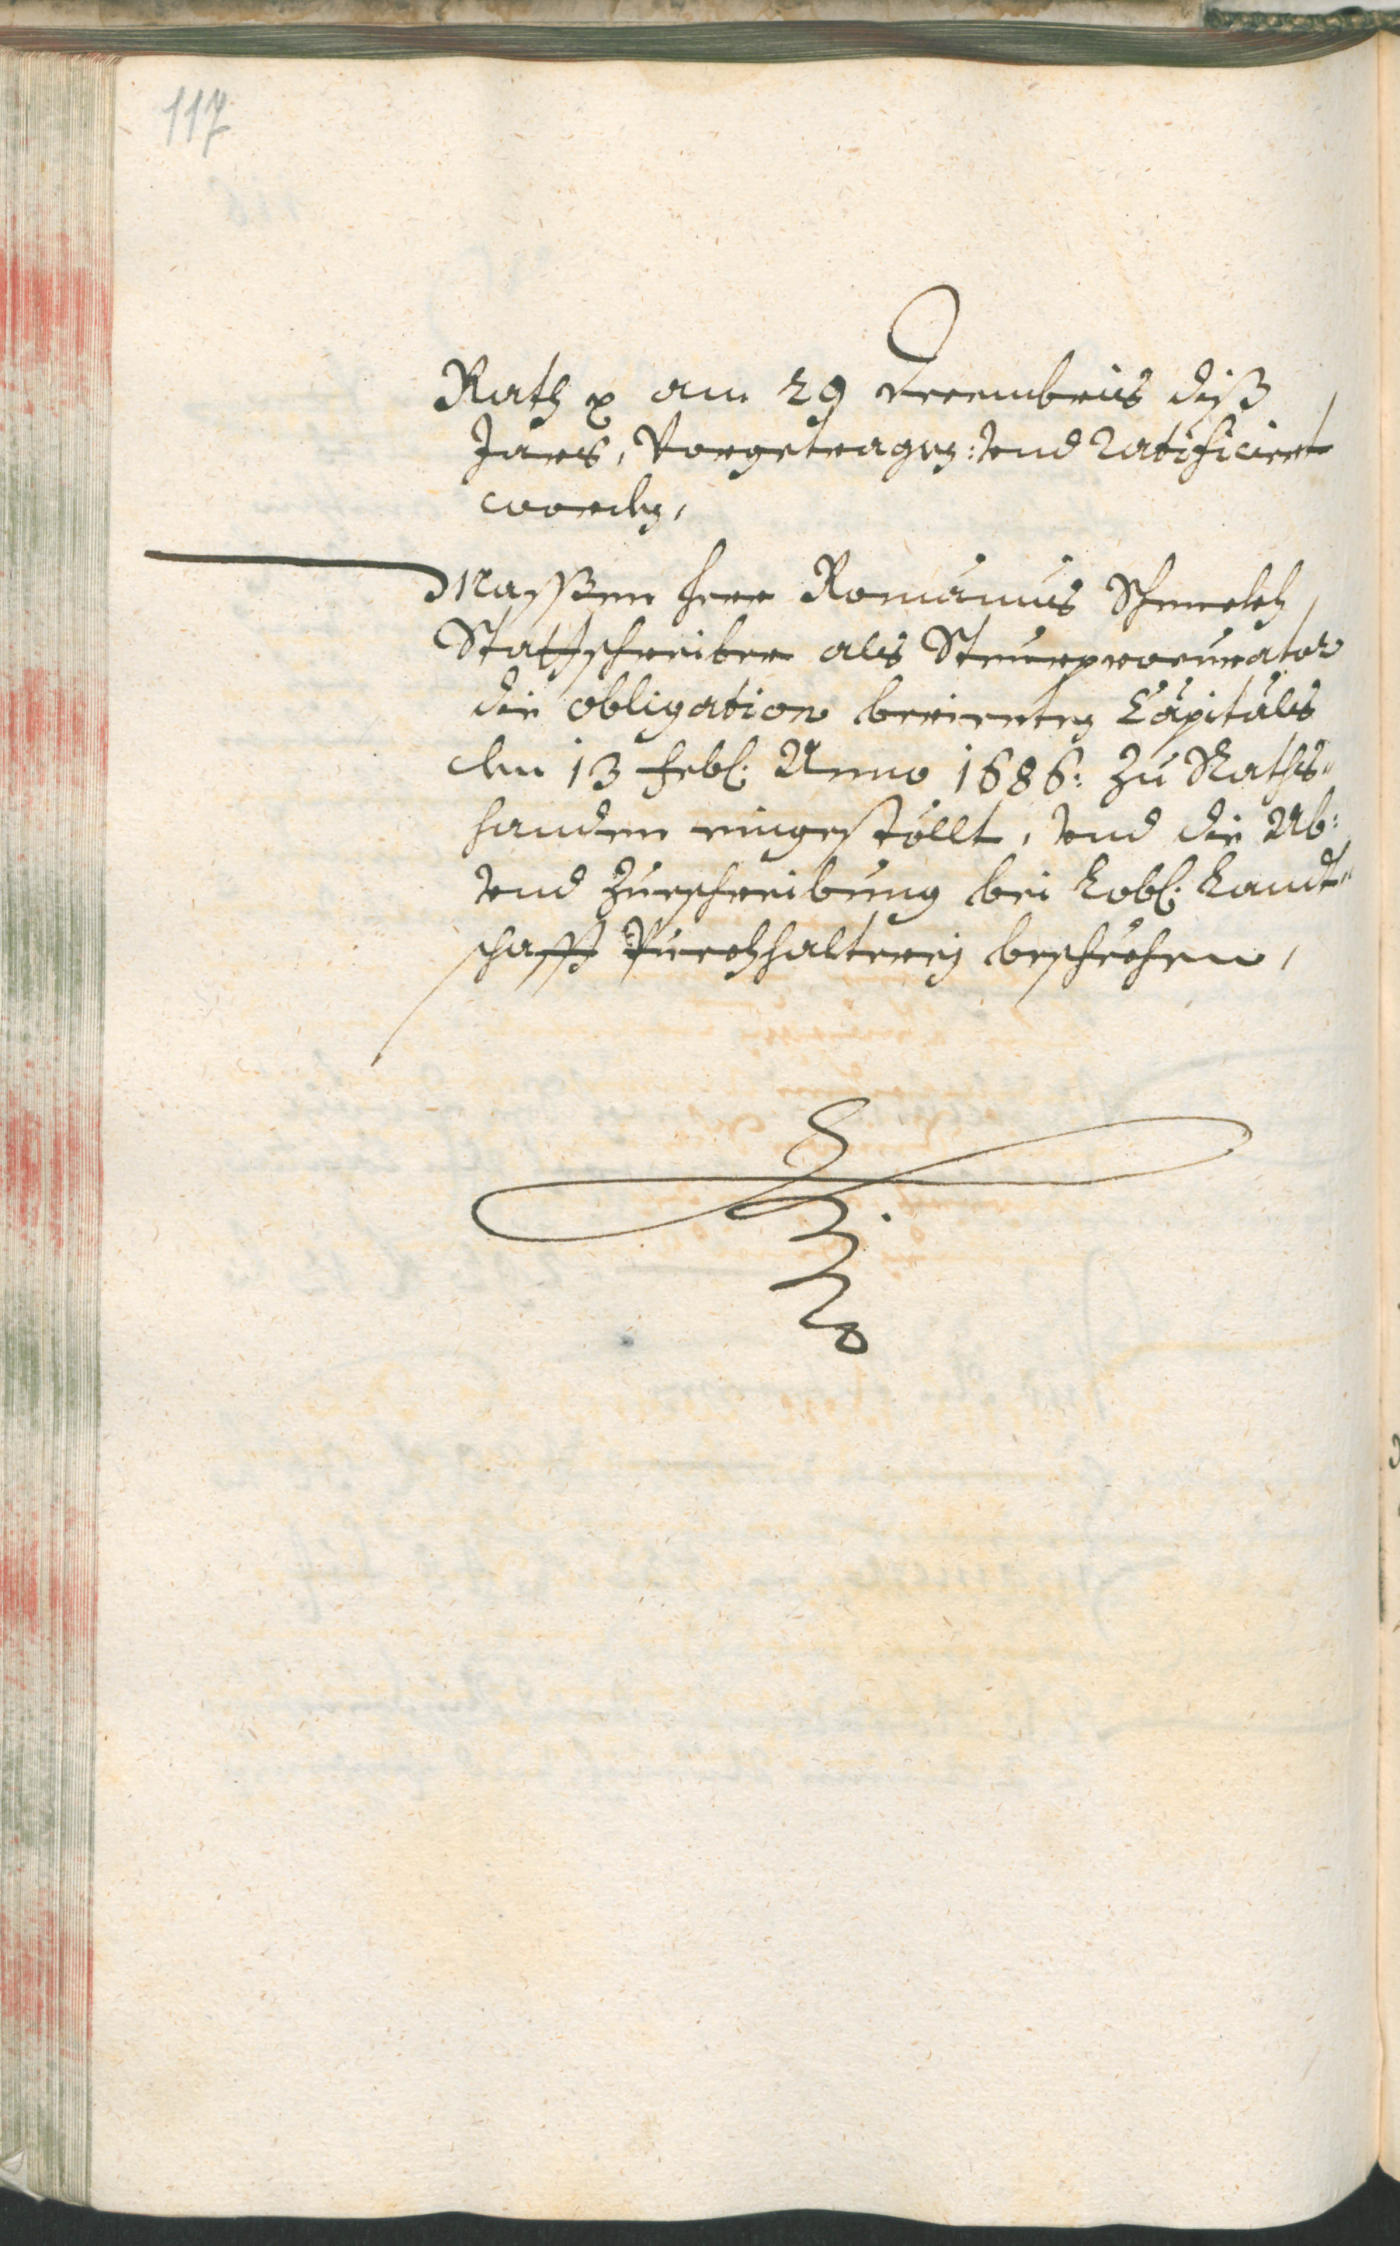 117
Rath p am 29 Decembris diß
Jars, Vorgetragen: vnd ratificiert
worden,
Massen herr Romanus Schmelz
Stattschreiber als Steurprocurator
die obligation berierten Capitals
den 13 febr: Anno 1686: zu Raths-
handen eingestöllt, vnd die Ab:
vnd Zueschreibung bei Lobl: Landt-
schafft Puechhalterej beschehen,